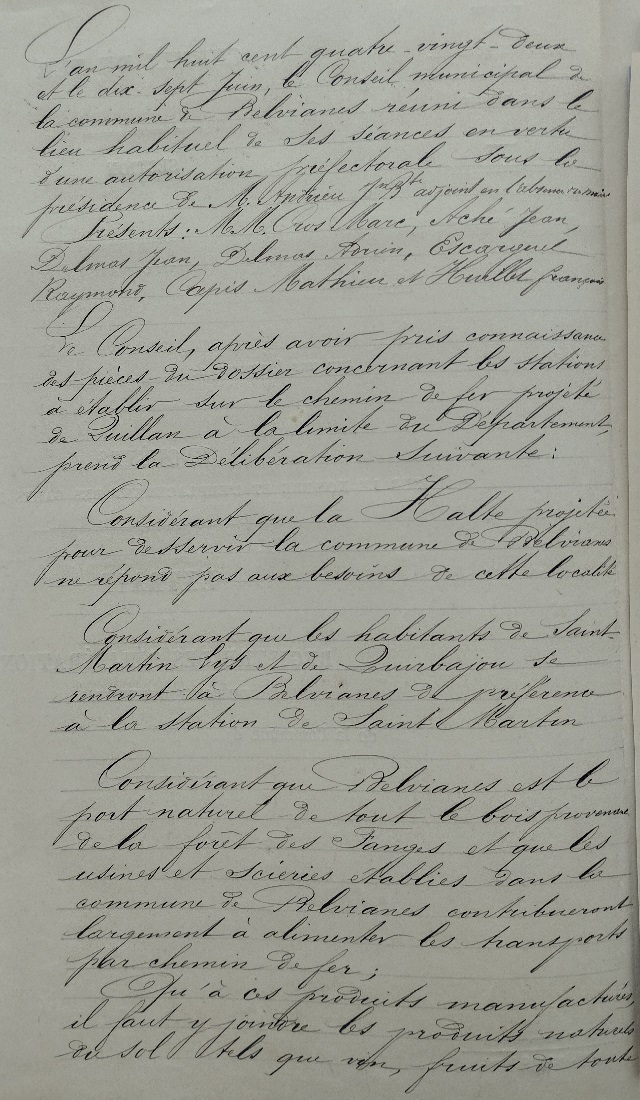 L'an mil huit cent quatre-vingt-deux
et le dix sept Juin, le Conseil municipal de
la commune de Belvianes réuni dans le
lieu habituel de ses séances en vertu
d'une autorisation préfectorale sous la
présidence de M. Andrieu adjoint en l'absence du maire
Présents: M.M. Cros Marc, Aché Jean,
Delmas Jean, Delmas Adrien, Escarguel
Raymond, Capis Mathieu et Huillet françois
Le Conseil, après avoir pris connaissance
des pièces du dossier concernant les stations
à établir sur le chemin de fer projeté
de Quillan à la limite du Département,
prend la Délibération suivante:
Considérant que la Halte projetée
pour desservir la commune de Belvianes
ne répond pas aux besoins de cette localité
Considérant que les habitants de Saint-
Martin Lys et de Quirbajou se
rendront à Belvianes de préférence
à la station de Saint Martin
Considérant que Belvianes est le
port naturel de tout le bois provenant
de la forêt des Fanges et que les
usines et scieries etablies dans la
commune de Belvianes contribueront
largement à alimenter les transports
par chemin de fer;
Qu'à ces produits manufacturés,
il faut y joindre les produits naturels
du sol tels que vin, fruits de toute